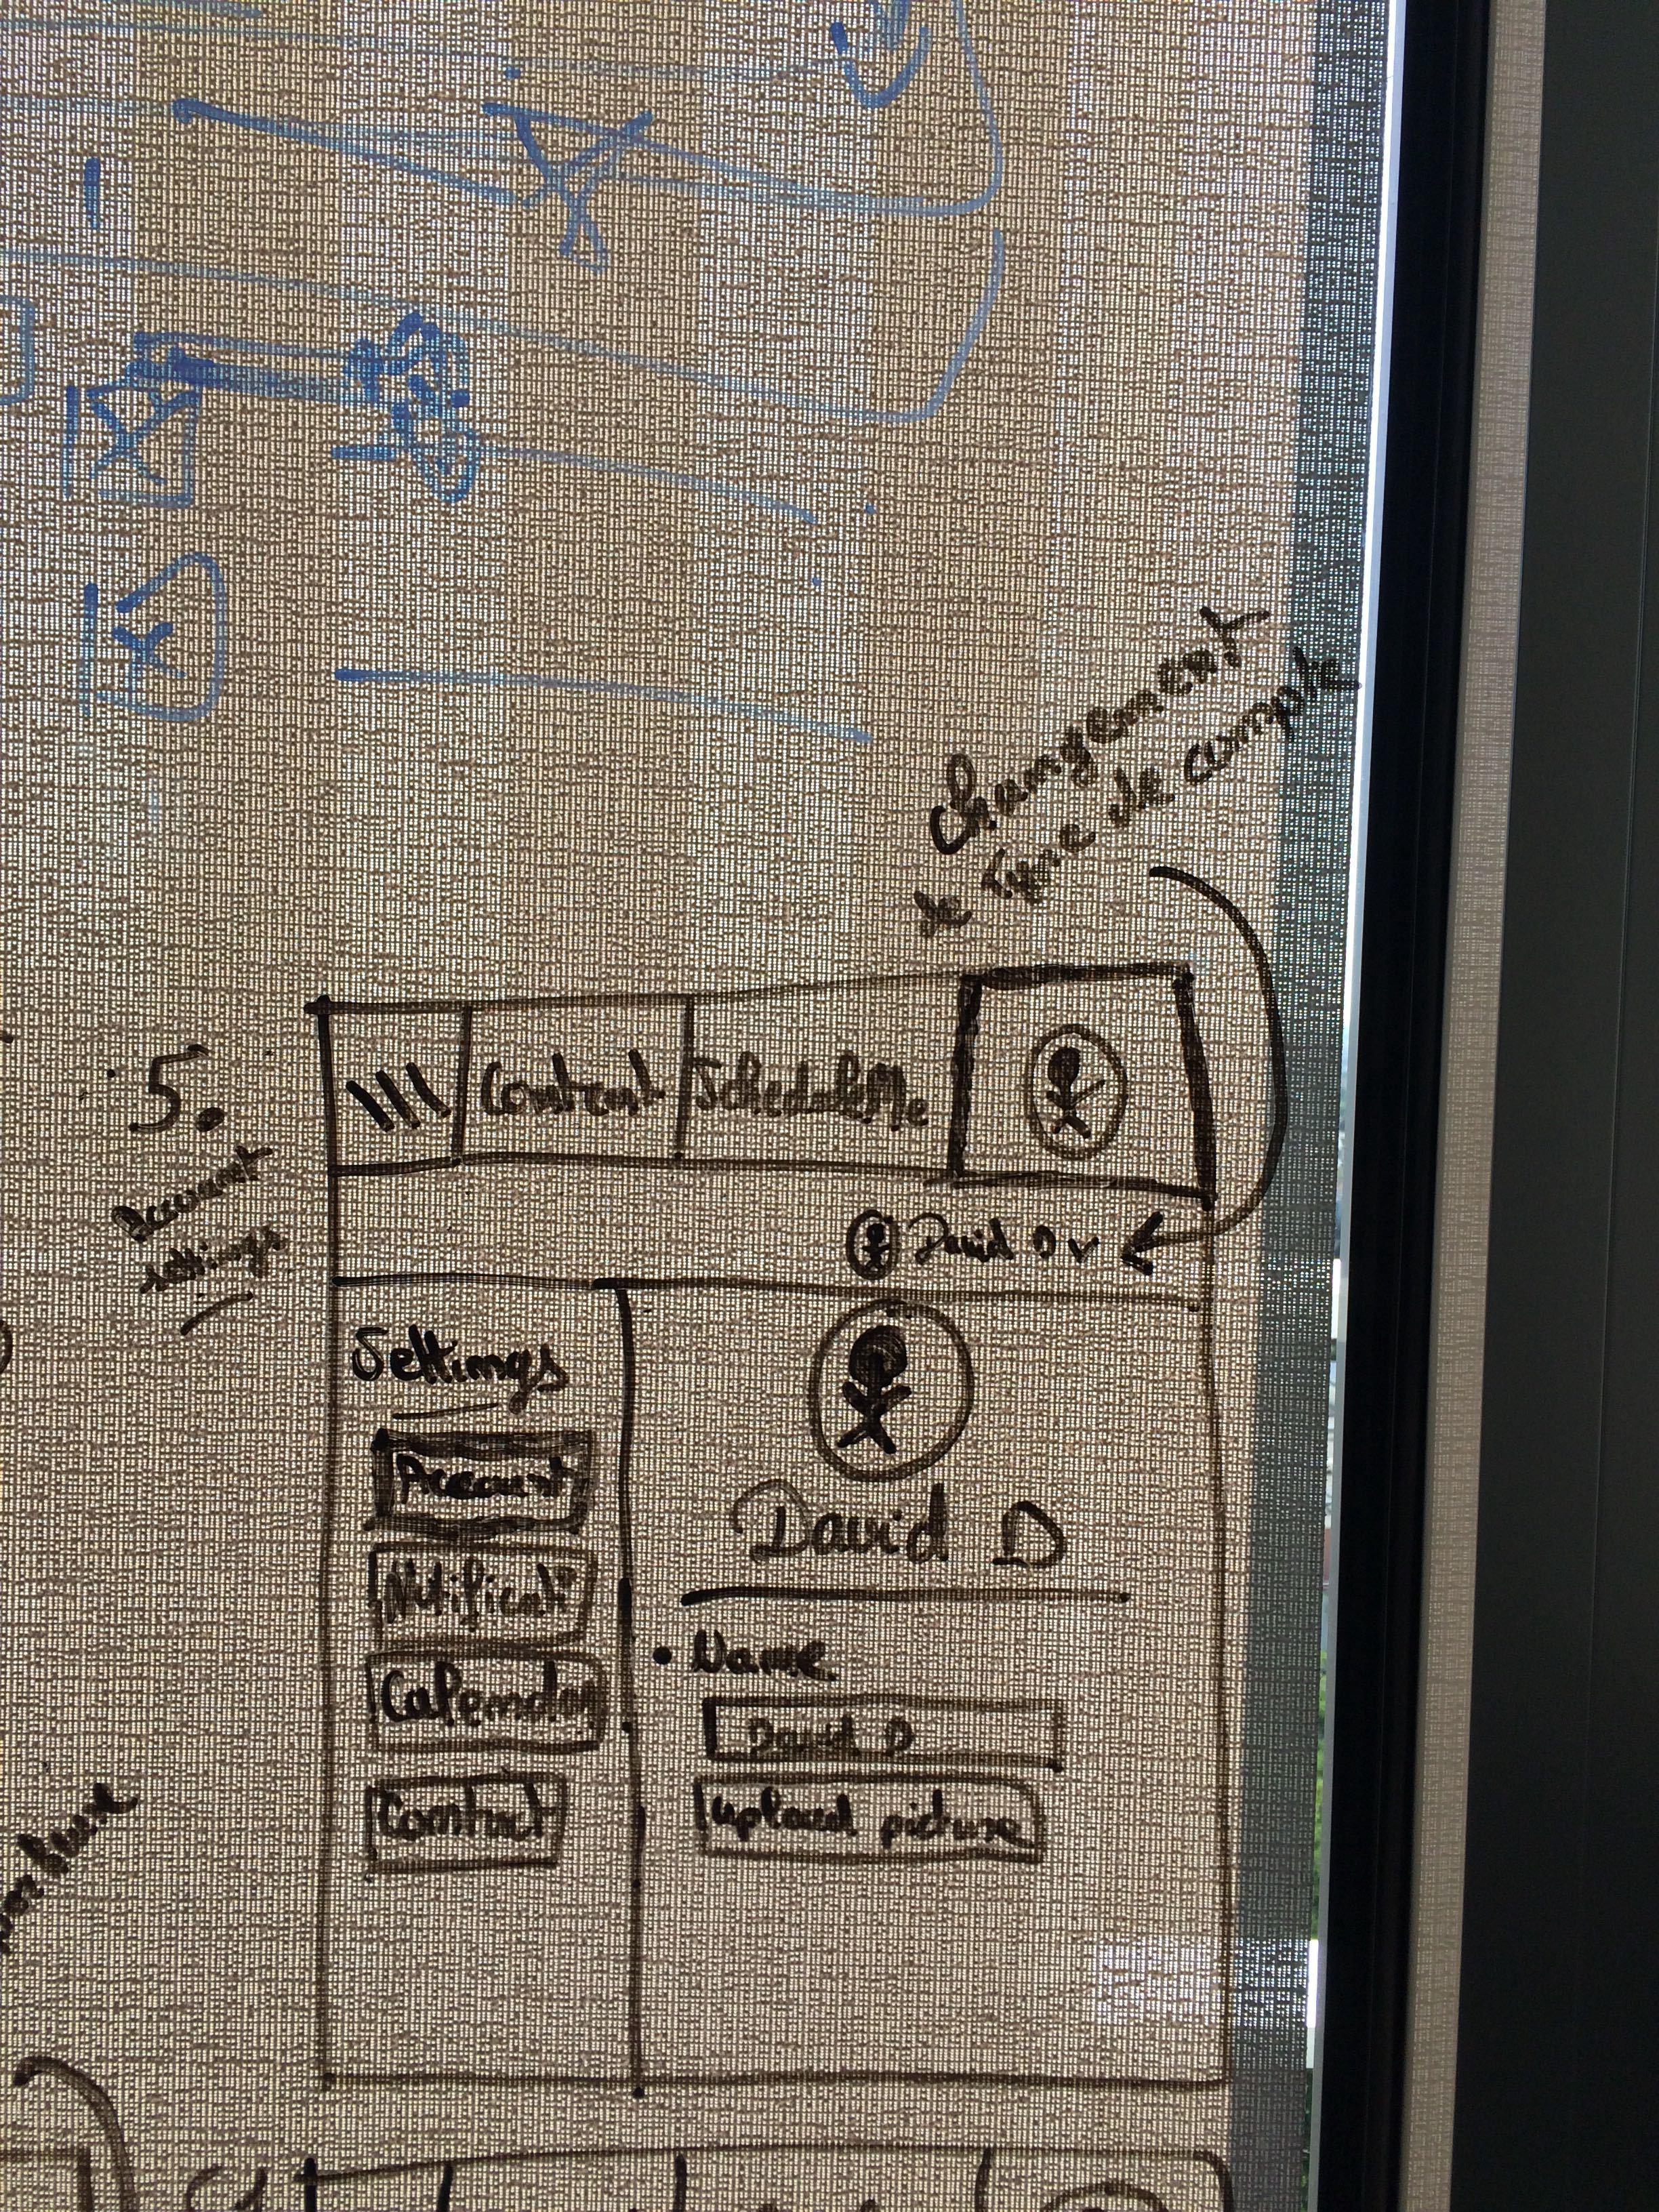 Changement
de type de compte
5.
Account
settings
Contact
ScheduleMe
David D v
Settings
Account
Notificati
Calendar
Contact
David D
• Name
David D
Upload picture